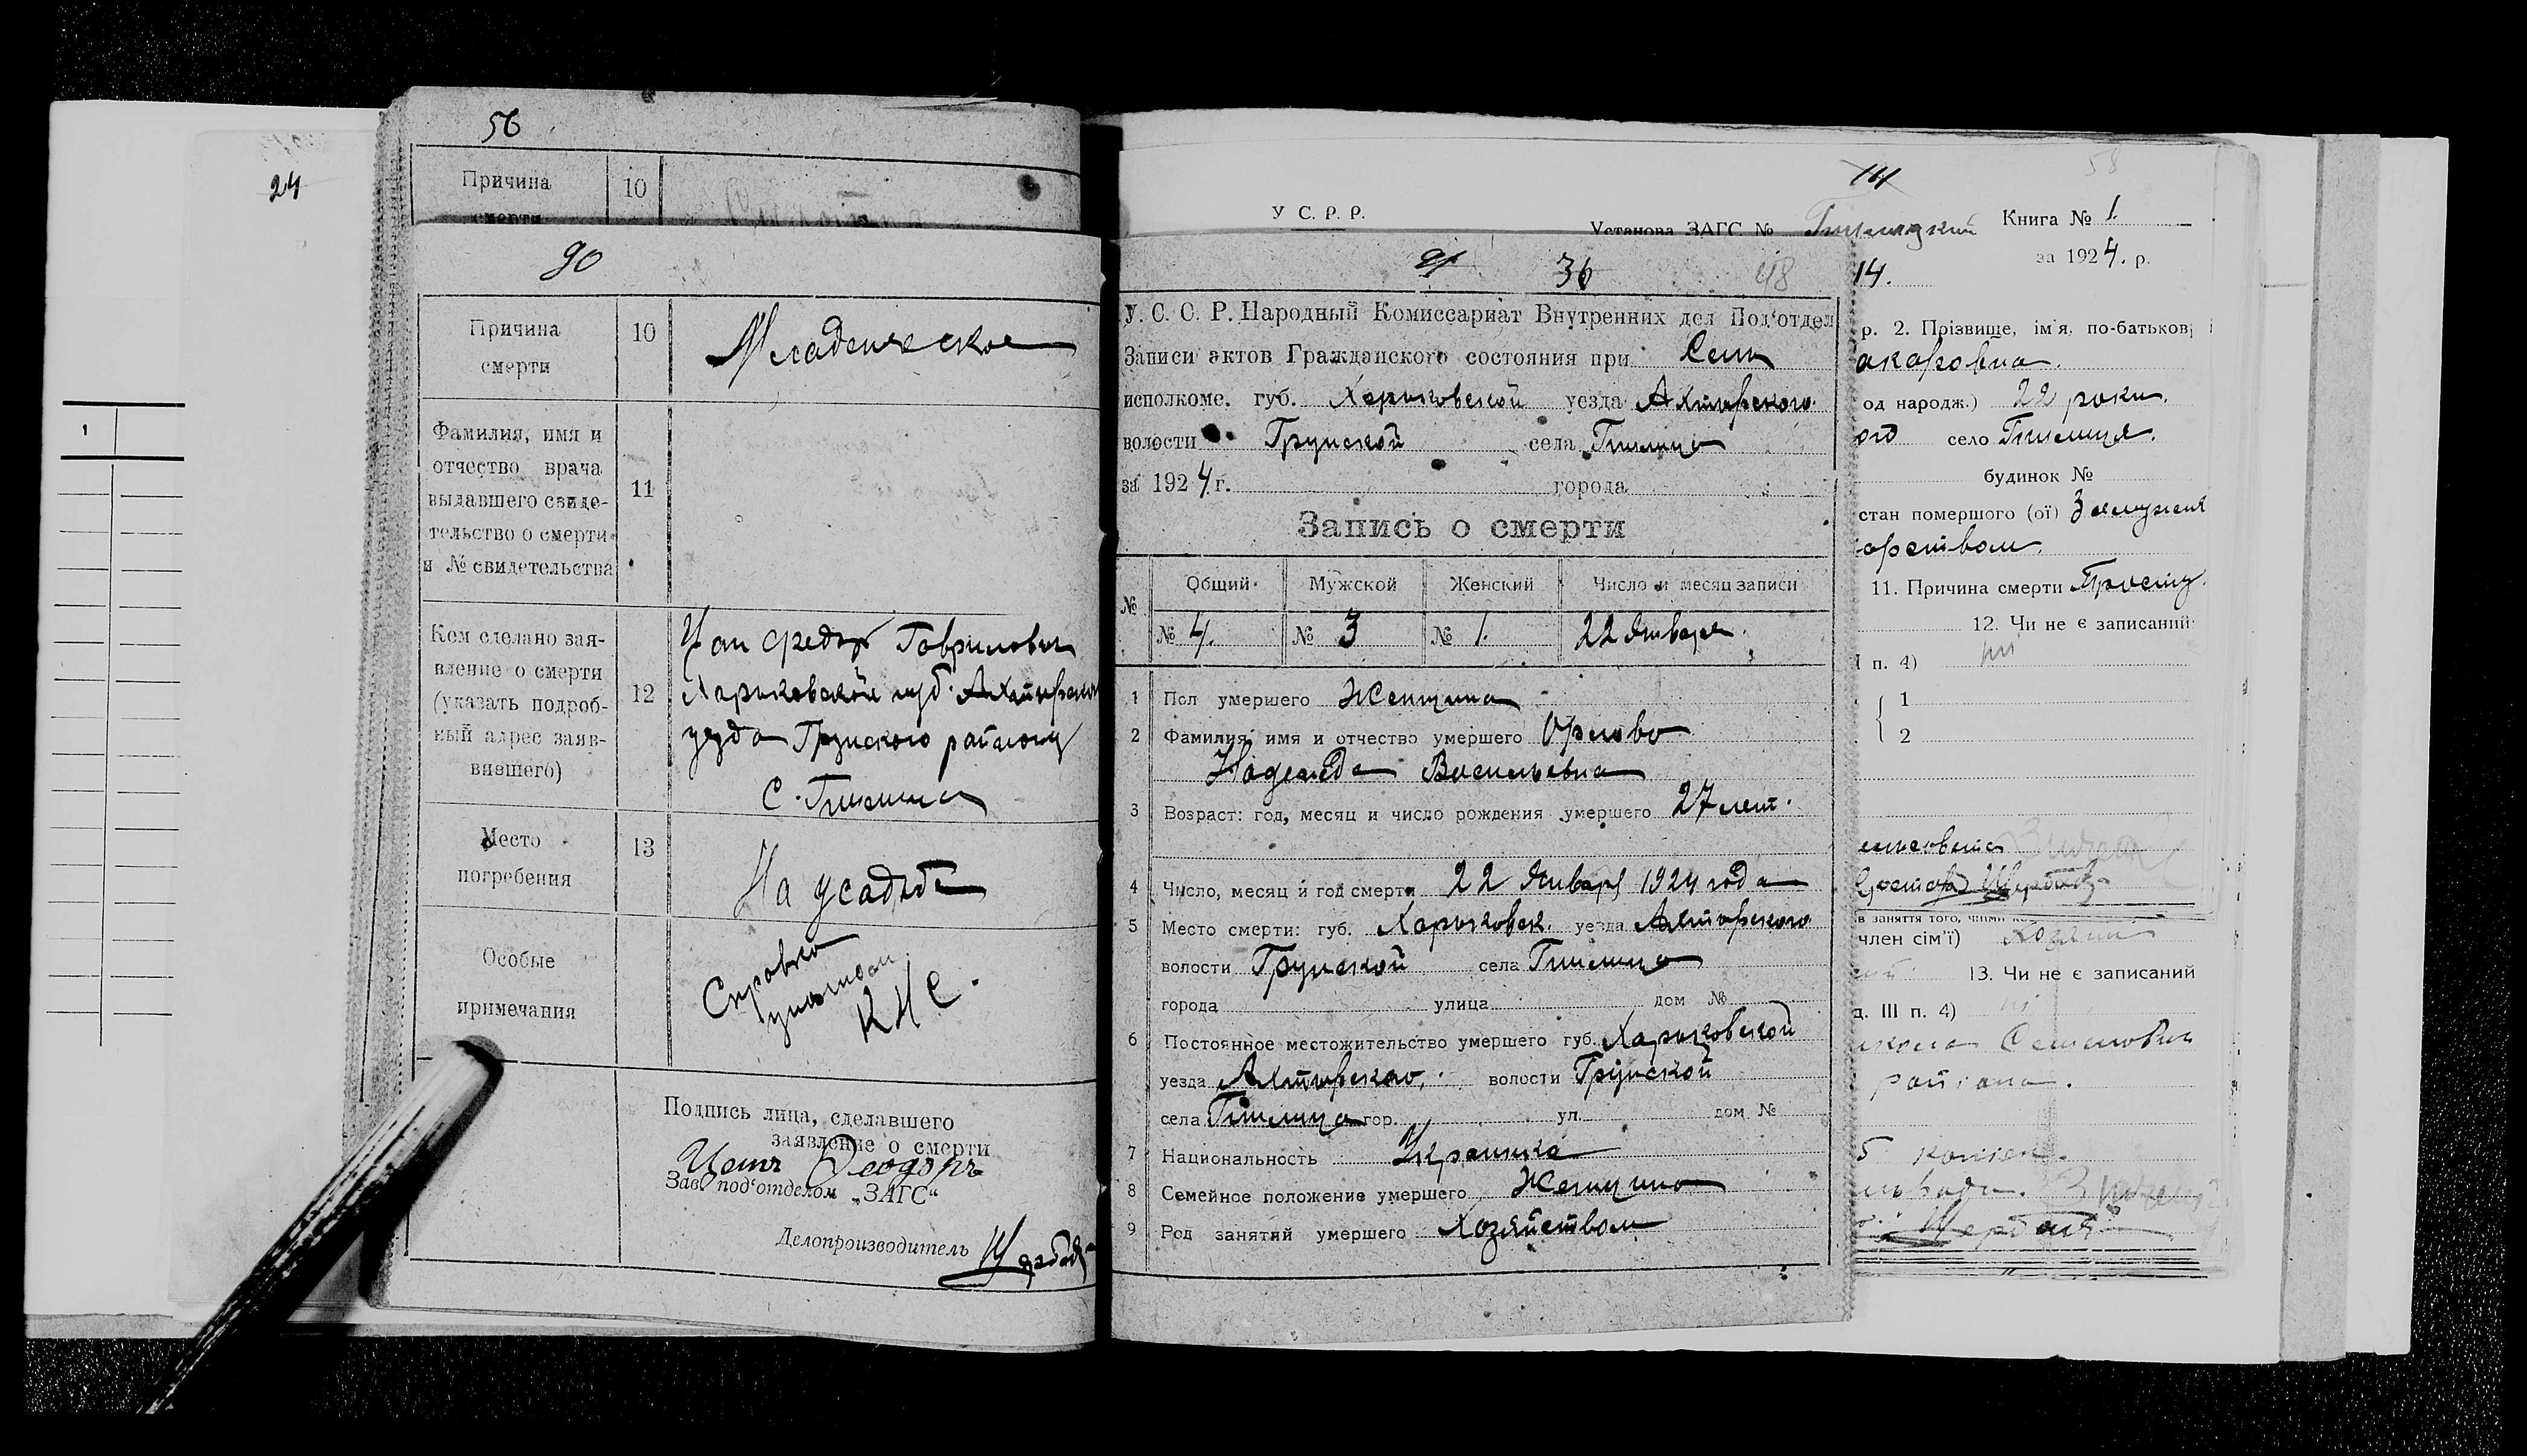 24
1
56
Причина
смерти
10
90
Причина
смерти
10
Младенческое
Фамилия, имя и
отчество врача
выдавшего свиде-
тельство о смерти
и № свидетельства
11
Кем сделано зая-
вление о смерти
(указать подроб-
ный адрес заяв-
вившего)
12
Цап Федор Гаврилович
Харьковской губ. Ахтырского
уезда Грунского району
С.
Место
погребения
13
На усадьбе
Особые
примечания
Справка
КНС.
Подпись лица, сделавшего
заявление о смерти
Зав. под'отделом „ЗАГС"
Делопроизводитель
У С. Р. Р.
Установа ЗАГС №
Книга № 1.
за 1924. р.
58
36
48
14.
У. С. С. Р. Народный Комиссариат Внутренних дел Под'отдел
Записи актов Гражданского состояния при Сель
исполкоме. губ. Харьковской уезда Ахтырского
волости Грунской села
за 1924 г. города
Запись о смерти
№
Общий Мужской Женский Число и месяц записи
№ 4. № 3 № 1. 22 Января.
1 Пол умершего Женщина
2 Фамилия, имя и отчество умершего Орлова
Надежда Васильевна
3 Возраст: год, месяц и число рождения умершего 27 лет.
4 Число, месяц и год смерти 22 Января 1924 года
5 Место смерти: губ. Харьковск. уезда Ахтырского
волости Грунской села
города улица дом №
6 Постоянное местожительство умершего губ. Харьковской
уезда Ахтырского, волости Грунской
села гор. ул. дом №
7 Национальность Украинка
8 Семейное положение умершего Женщина
9 Род занятий умершего Хозяйством
р. 2. Прізвище, ім'я, по-батькові
акаровна.
од народж.) 22 роки.
ого село
будинок №
стан помершого (ої) Замужня
арством.
11. Причина смерти
12. Чи не є записаний
І п. 4) ні
1
2
в заняття того, чиїм
член сім'ї)
13. Чи не є записаний
д. III п. 4) ні
Семенович
района.